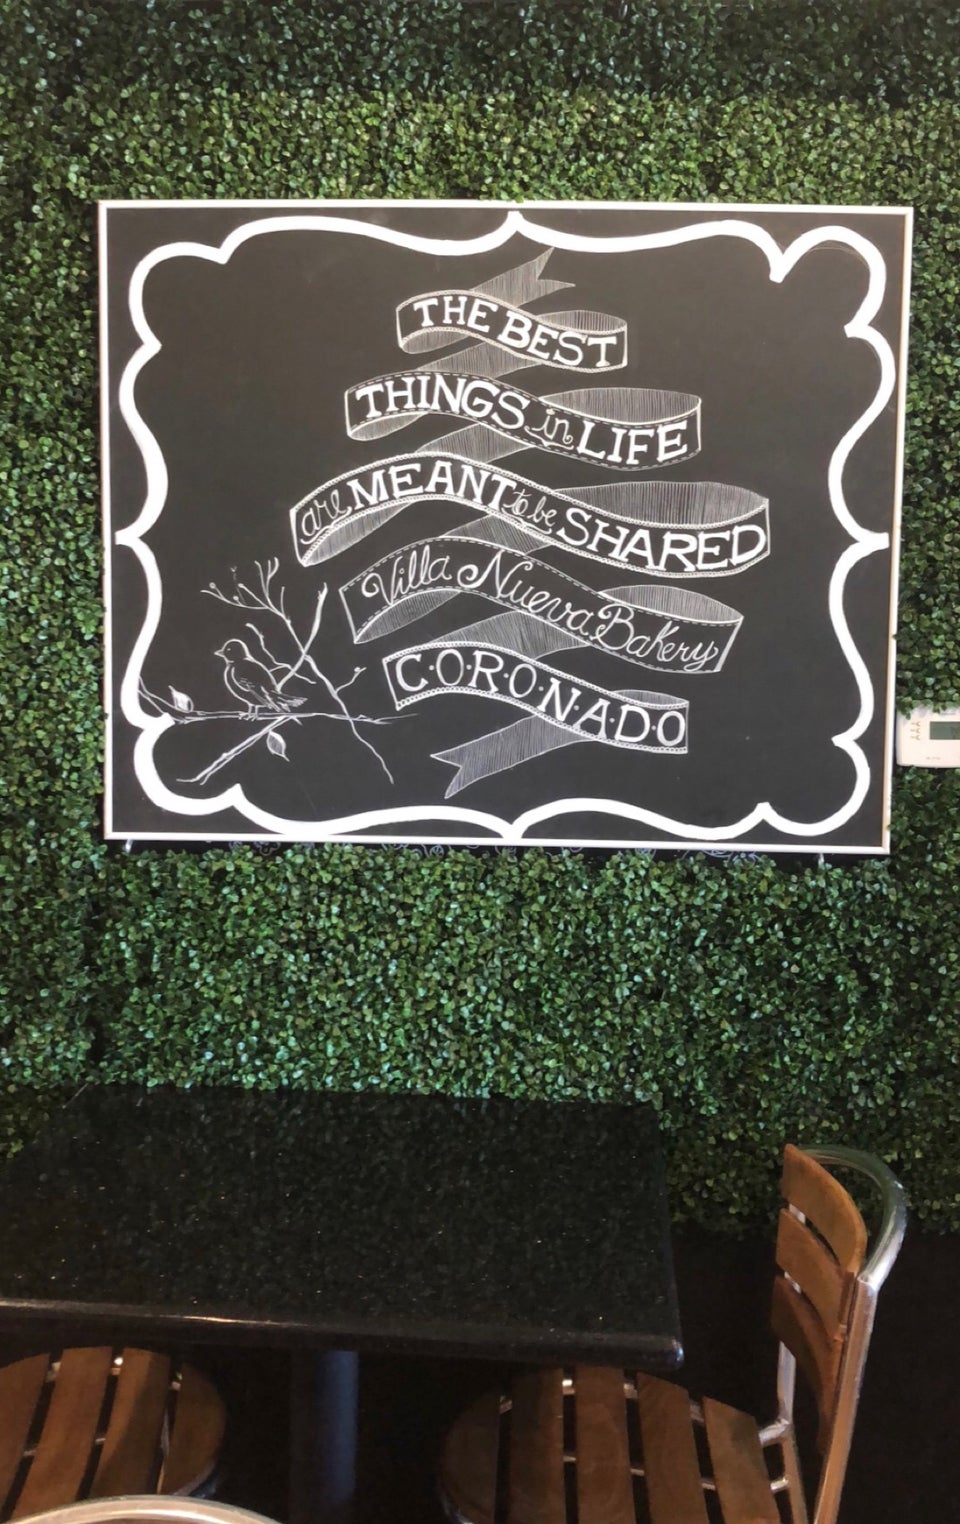 THE BEST
THINGS in LIFE
are MEANT to be SHARED
Villa Nueva Bakery
C·O·R·O·N·A·D·O